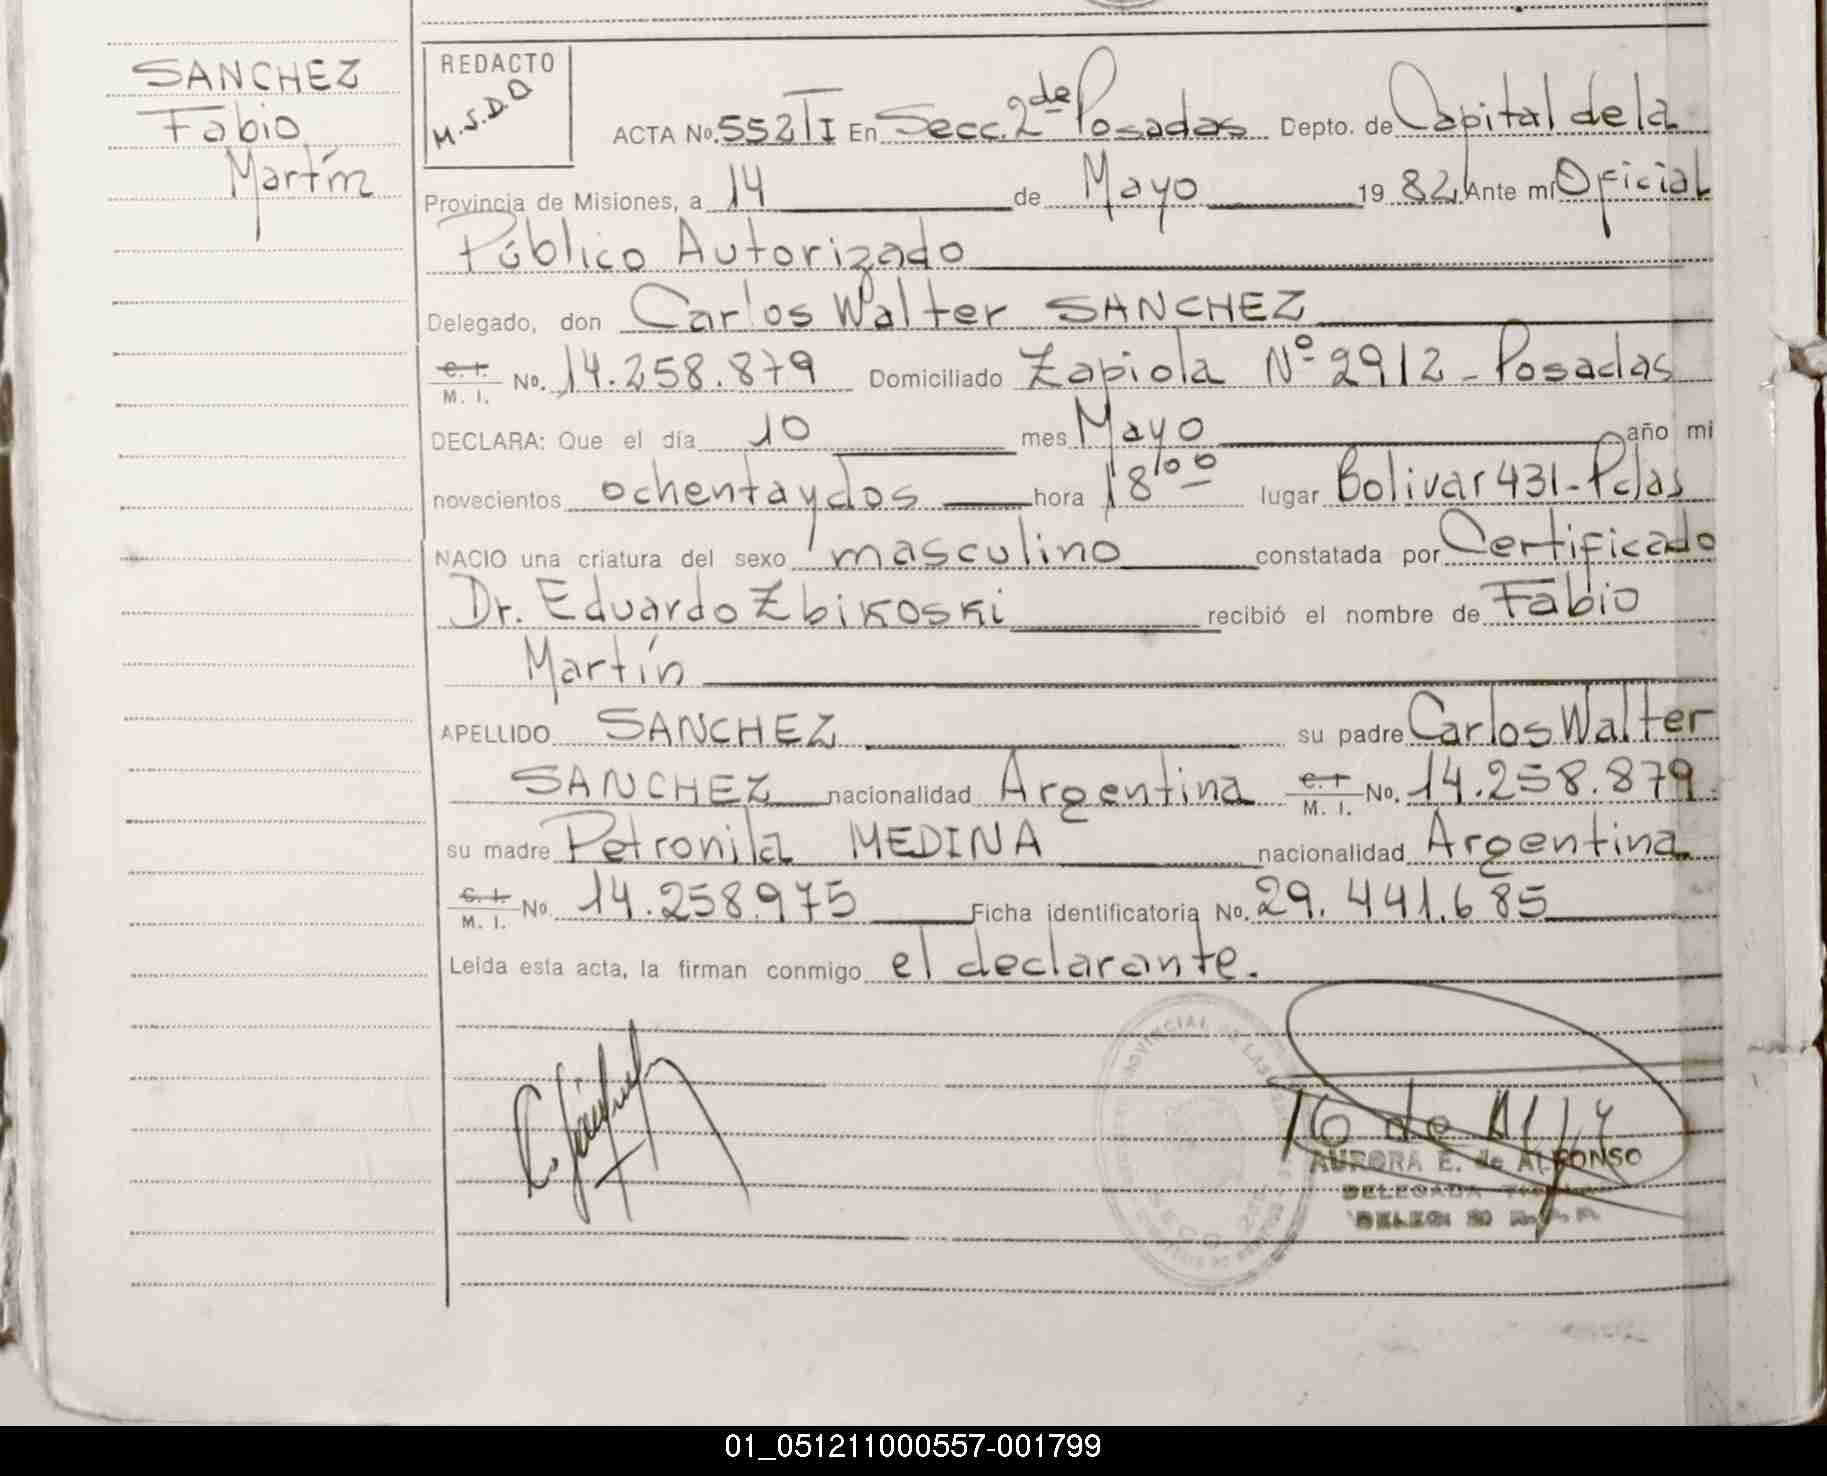 SANCHEZ
Fabio
Martín
REDACTO
M.S.D.O
ACTA No. 552 T I En Secc. 2da de Posadas Depto. de Capital de la
Provincia de Misiones, a 14 de Mayo 19 82 Ante mí Oficial
Público Autorizado
Delegado, don Carlos Walter SANCHEZ
C. I. M. I. No. 14.258.879 Domiciliado Zapiola Nº 2912 - Posadas
DECLARA: Que el día 10 mes Mayo año mi
novecientos ochenta y dos hora 18/00 lugar Bolivar 431 - Pdas
NACIO una criatura del sexo masculino constatada por Certificado
Dr. Eduardo Zbikoski recibió el nombre de Fabio
Martín
APELLIDO SANCHEZ su padre Carlos Walter
SANCHEZ nacionalidad Argentina C. I. M. I. No. 14.258.879
su madre Petronila MEDINA nacionalidad Argentina
C. I. M. I. No. 14.258.975 Ficha identificatoria No. 29.441.685
Leída esta acta, la firman conmigo el declarante.
AURORA E. de ALFONSO
DELEGADA
01_051211000557-001799